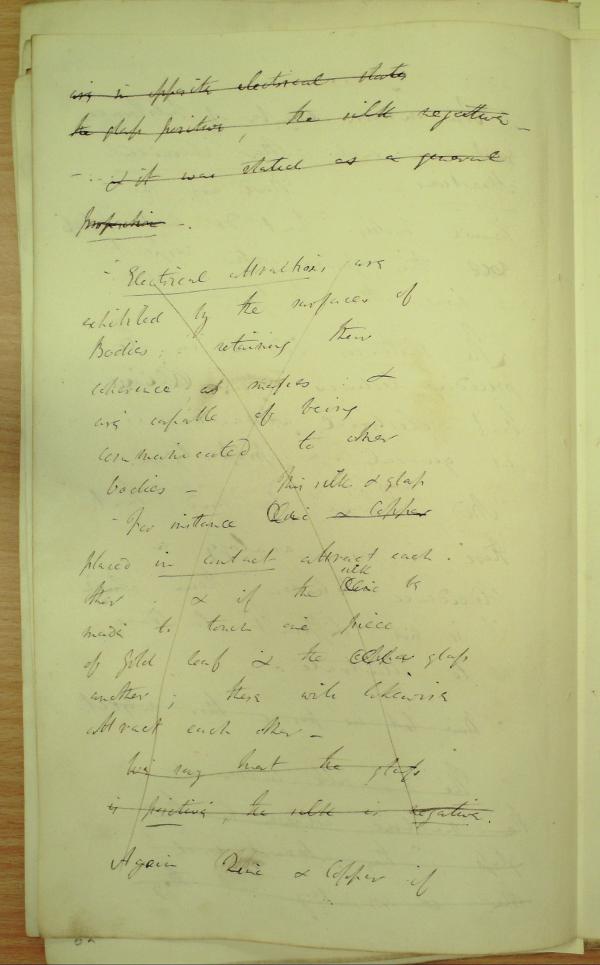 are in opposite electrical states
the glass positive, the silk negative -
- & it was stated as a general
proposition -.
- Electrical attractions are
exhibited by the surfaces of
Bodies; retaining their
coherence as masses: &
are capable of being
communicated to other
bodies -
Thin silk & glass
- For instance Zinc & Copper
placed in contact attract each
other. & if the Zinc be
silk
made to touch one piece
of gold leaf & the glass
another; these will likewise
attract each other -
We say that the glass
is positive, the silk is negative.
Again Zinc & Copper if